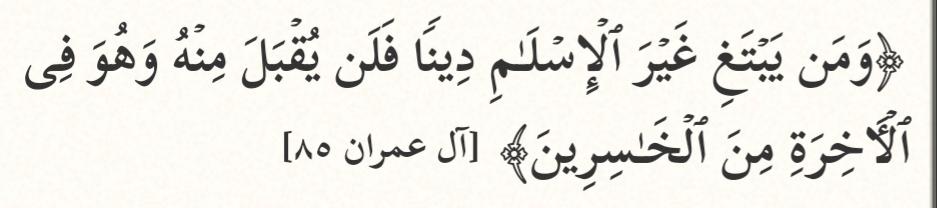 ﴿وَمَن يَبْتَغِ غَيْرَ ٱلْإِسْلَـٰمِ دِينًا فَلَن يُقْبَلَ مِنْهُ وَهُوَ فِى
ٱلْأَخِرَةِ مِنَ ٱلْخَـٰسِرِينَ﴾ [آل عمران ٨٥]